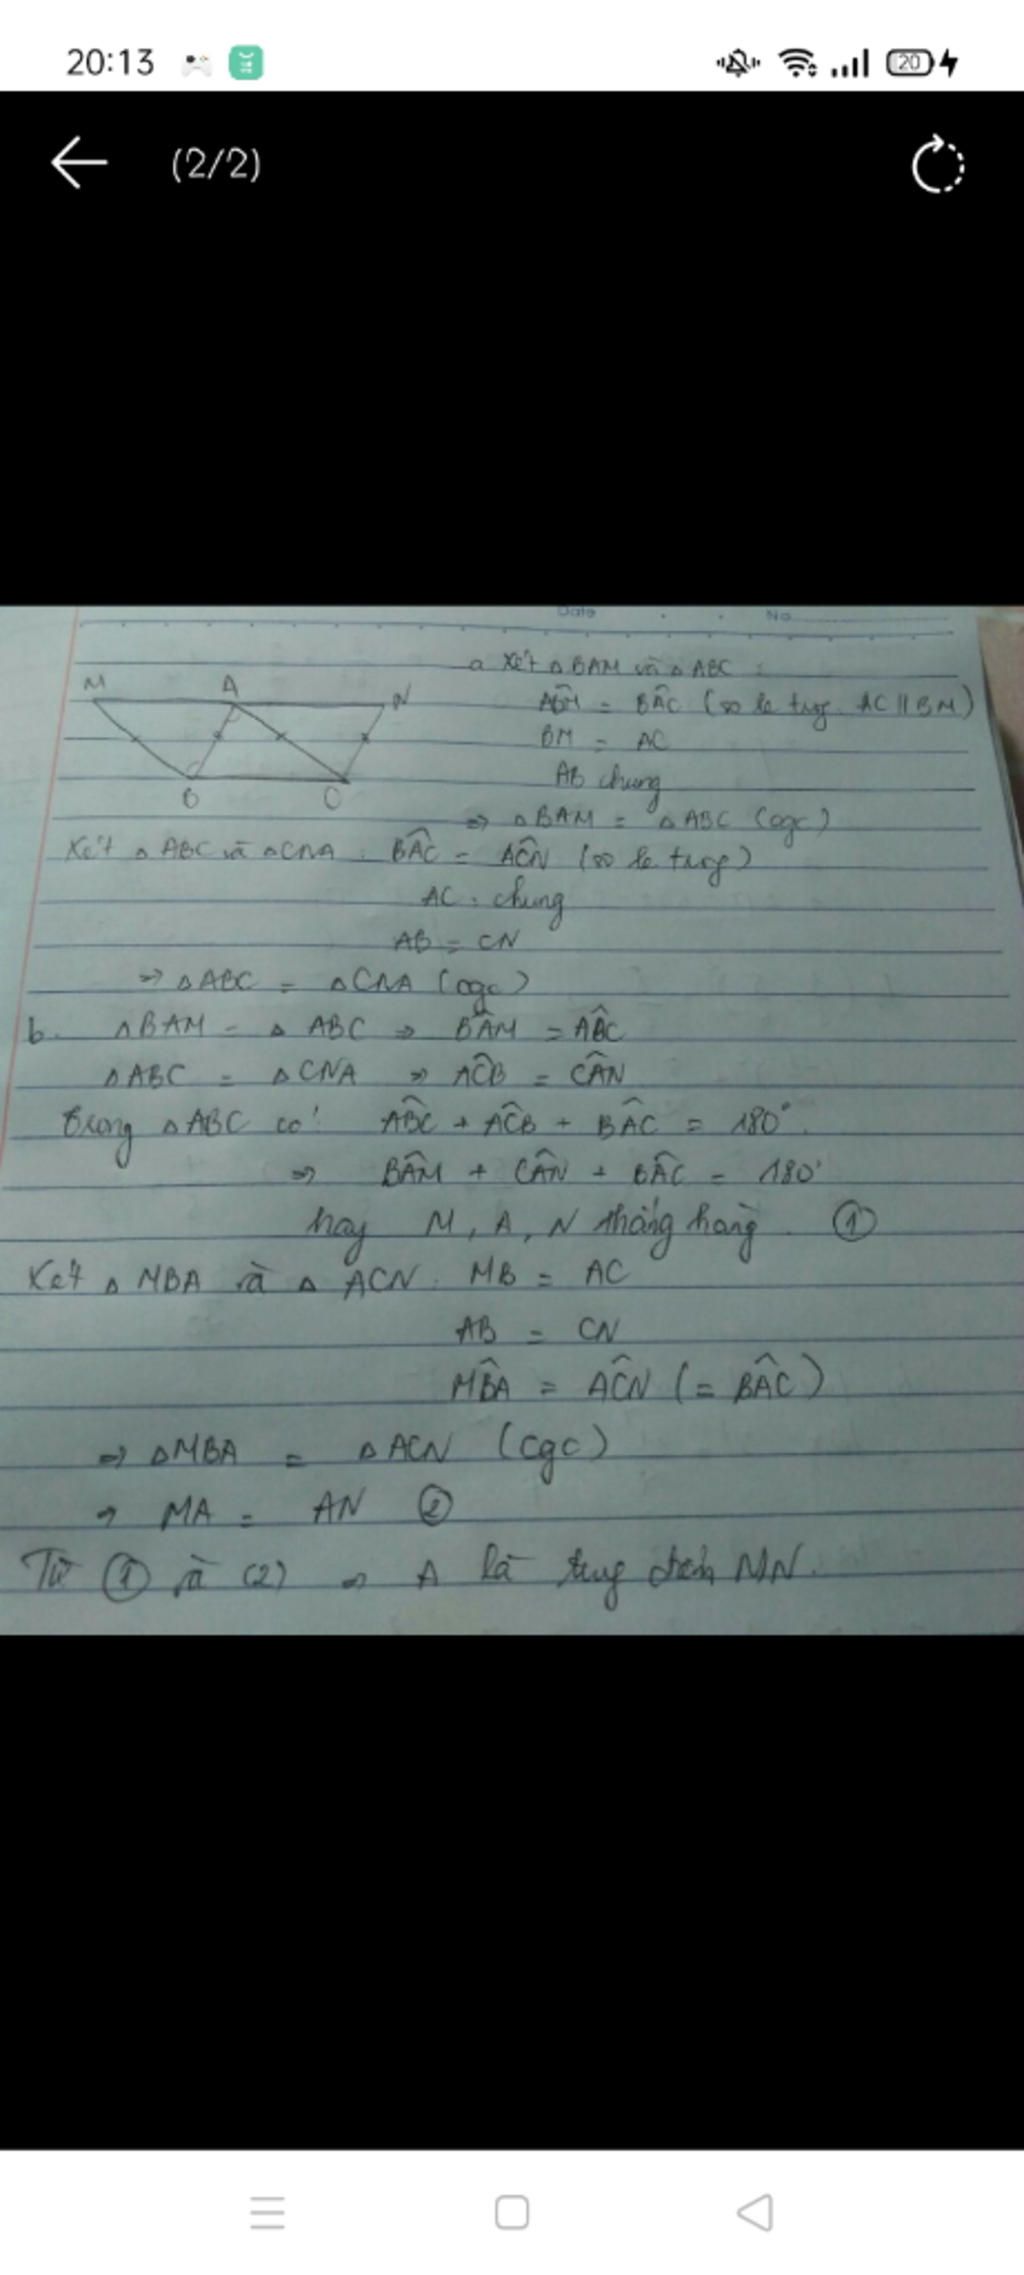 20:13
20
(2/2)
Date No
a Xét △BAM và △ABC :
M A N
ABM̂ = BÂC (so le trog. AC // BM)
BM = AC
AB chung
B C
=> △BAM = △ABC (cgc)
Xét △ABC và △CNA : BÂC = AĈN (so le trog)
AC : chung
AB = CN
=> △ABC = △CNA (cgc)
b. △BAM = △ABC => BÂM = AB̂C
△ABC = △CNA => AĈB = CÂN
Trong △ABC có: AB̂C + AĈB + BÂC = 180°.
=> BÂM + CÂN + BÂC = 180°
hay M, A, N thẳng hàng. ①
Xét △MBA và △ACN. MB = AC
AB = CN
MB̂A = AĈN (= BÂC)
=> △MBA = △ACN (cgc)
=> MA = AN ②
Từ ① và (2) => A là trug điểm MN.